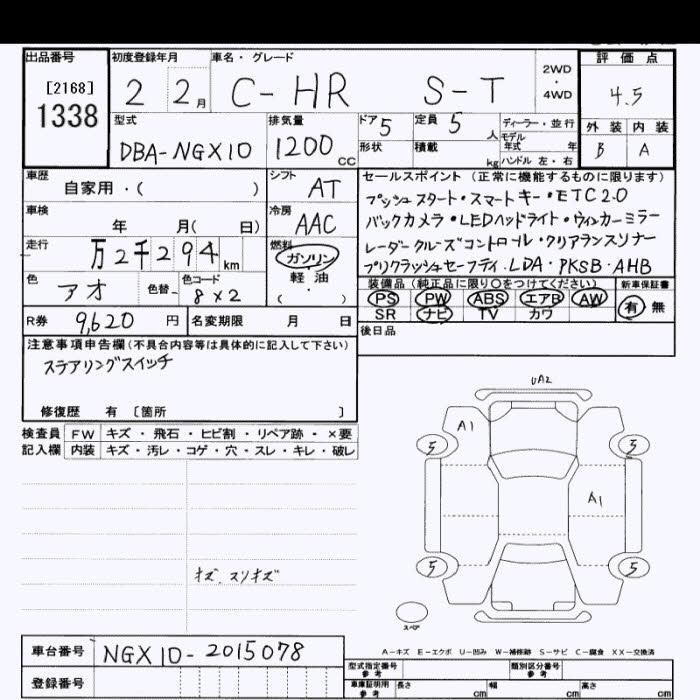 出品番号 初度登録年月 車名・グレード 評価点
[2168] 2 2月 C-HR S-T 2WD・4WD 4.5
1338
型式 排気量 ドア 5 定員 5人 ディーラー・並行 外装 内装
DBA-NGX10 1200cc 形状 積載 kg モデル年式 年 B A
ハンドル 左・右
車歴 シフト セールスポイント(正常に機能するものに限ります)
自家用・( ) AT プッシュスタート・スマートキー・ETC2.0
車検 冷房 バックカメラ・LEDヘッドライト・ウィンカーミラー
年 月( 日) AAC レーダークルーズコントロール・クリアランスソナー
走行 燃料 プリクラッシュセーフティ・LDA・PKSB・AHB
万2千294km ガソリン
軽油
・( )
色 色替 色コード 装備品(純正品に限り○をつけてください) 新車保証書
アオ 8×2 PS PW ABS エアB AW 有 無
SR ナビ TV カワ
R券 9,620円 名変期限 月 日 後日品
注意事項申告欄(不具合内容等は具体的に記入して下さい)
ステアリングスイッチ
修復歴 有〔箇所 〕
検査員 FW キズ・飛石・ヒビ割・リペア跡・×要
記入欄 内装 キズ・汚レ・コゲ・穴・スレ・キレ・破レ
UA2
A1
5 5
A1
5 5
キズ、スリキズ
スペア
A-キズ E-エクボ U-凹み W-補修跡 S-サビ C-腐食 XX-交換済
車台番号 NGX10-2015078
型式指定番号 参考 類別区分番号 参考
登録番号
車庫証明用 参考 長さ cm 幅 cm 高さ cm